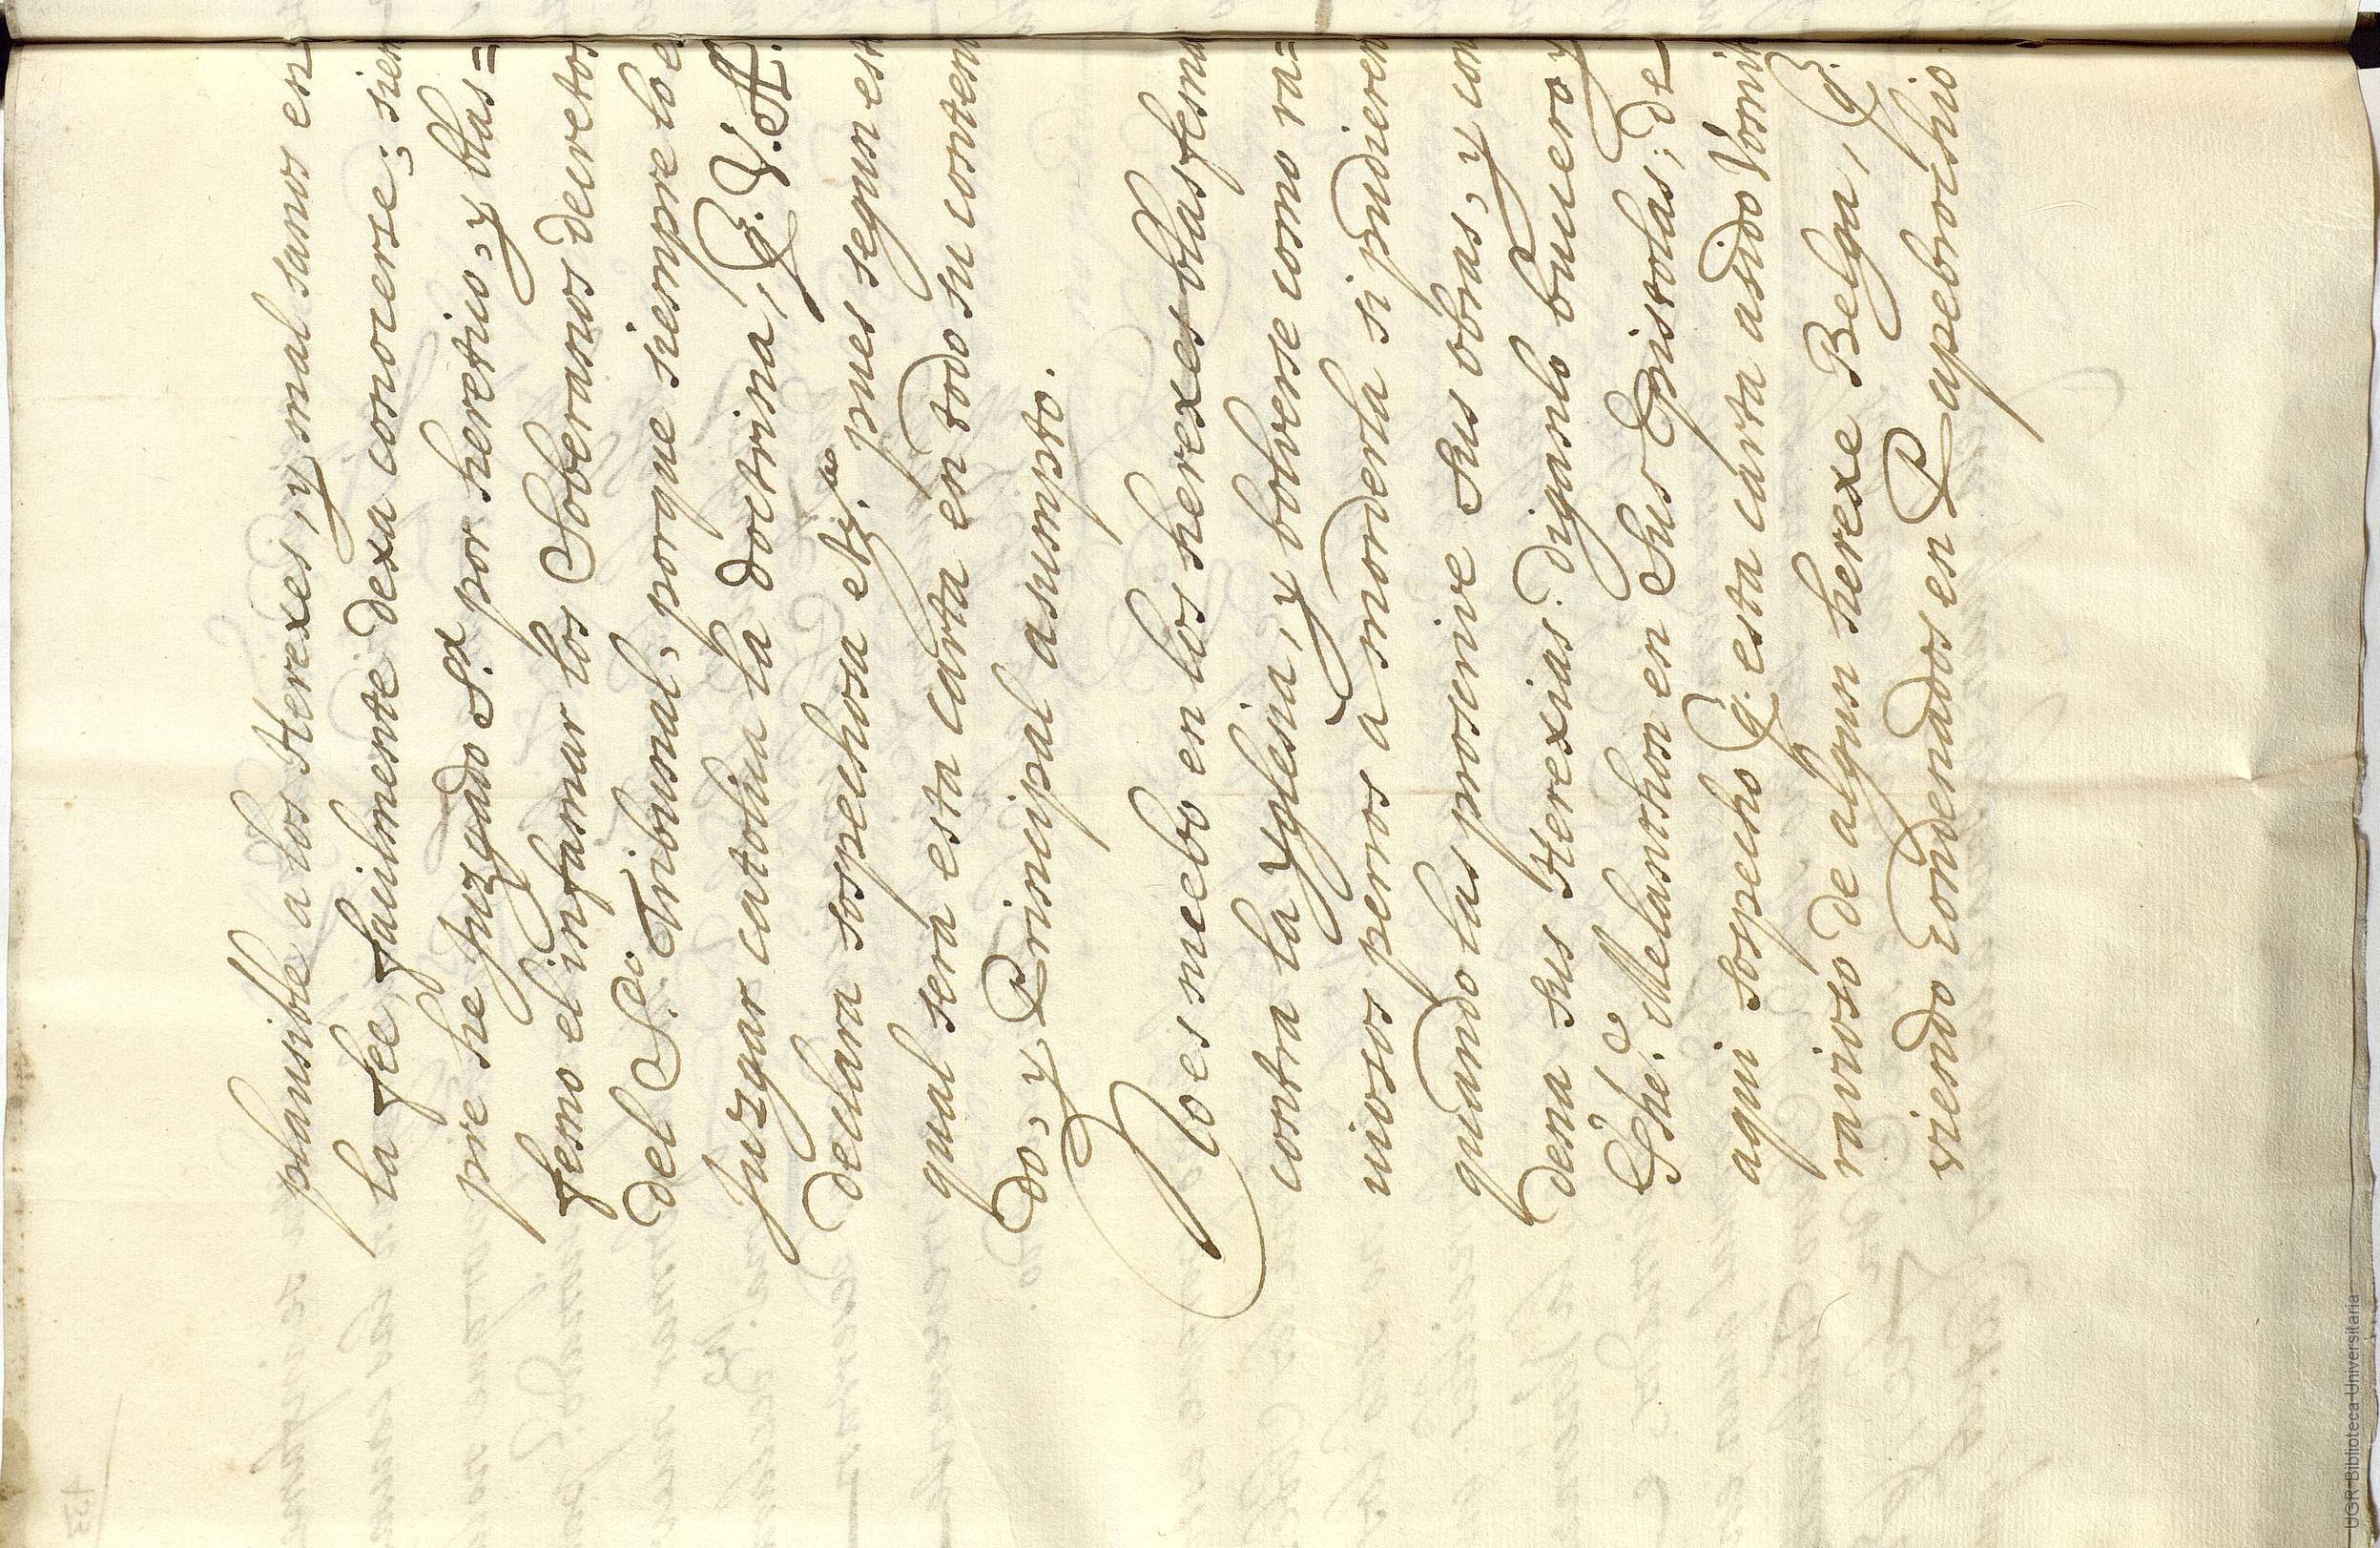 plausible a los Herexes, y mal sanos en
la fee, facilmente dexa conocerse; siem
pre he juzgado S.ʳ por heretico, y blas=
femo el infamar los Soberanos decretos
del S.ᵗᵒ Tribunal, porque siempre lo e
Juzgar catolica la doctrina, q. V. A.
declara sospechosa et.ª pues segun est
qual será esta carta en todo su conteni
do, y Principal asumpto.
No es nuebo en los herexes blasfema
contra la Yglesia, y bolverse como ra=
viosos perros à morderla si pudieren
quando las proscrive sus obras, y con
dena sus Herexias: diganlo bucero y
Phe. Melancthon en sus Epistolas; de
aqui sospecho q. esta carta asido Vomit
ravioso de algun herexe Belga, q.
viendo condenados en Papebrochio
UGR Biblioteca Universitaria